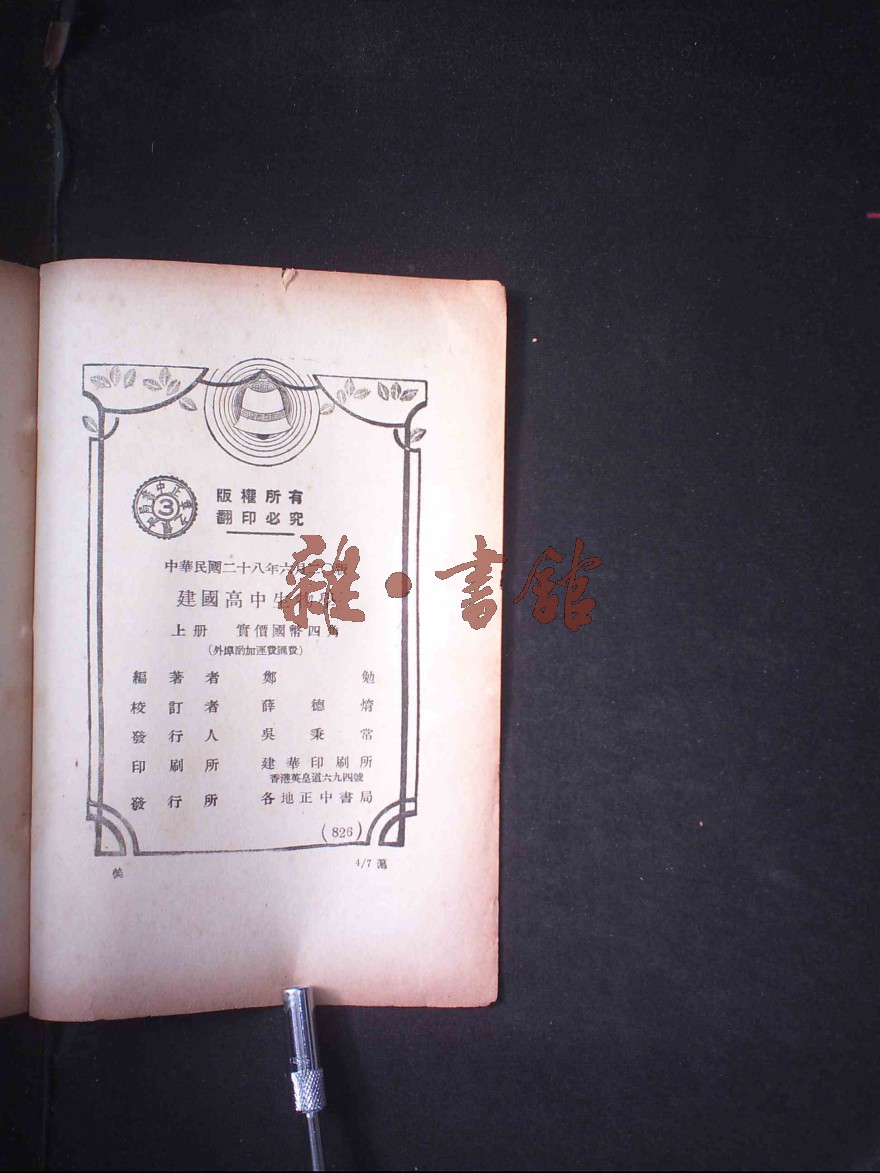 版權所有
翻印必究
3
雜·書館
中華民國二十八年六月二〇版
建國高中生物學
上册 實價國幣四角
(外埠酌加運費匯費)
編著者 鄭勉
校訂者 薛德焴
發行人 吳秉常
印刷所 建華印刷所
香港英皇道六九四號
發行所 各地正中書局
(826)
4/7 滬